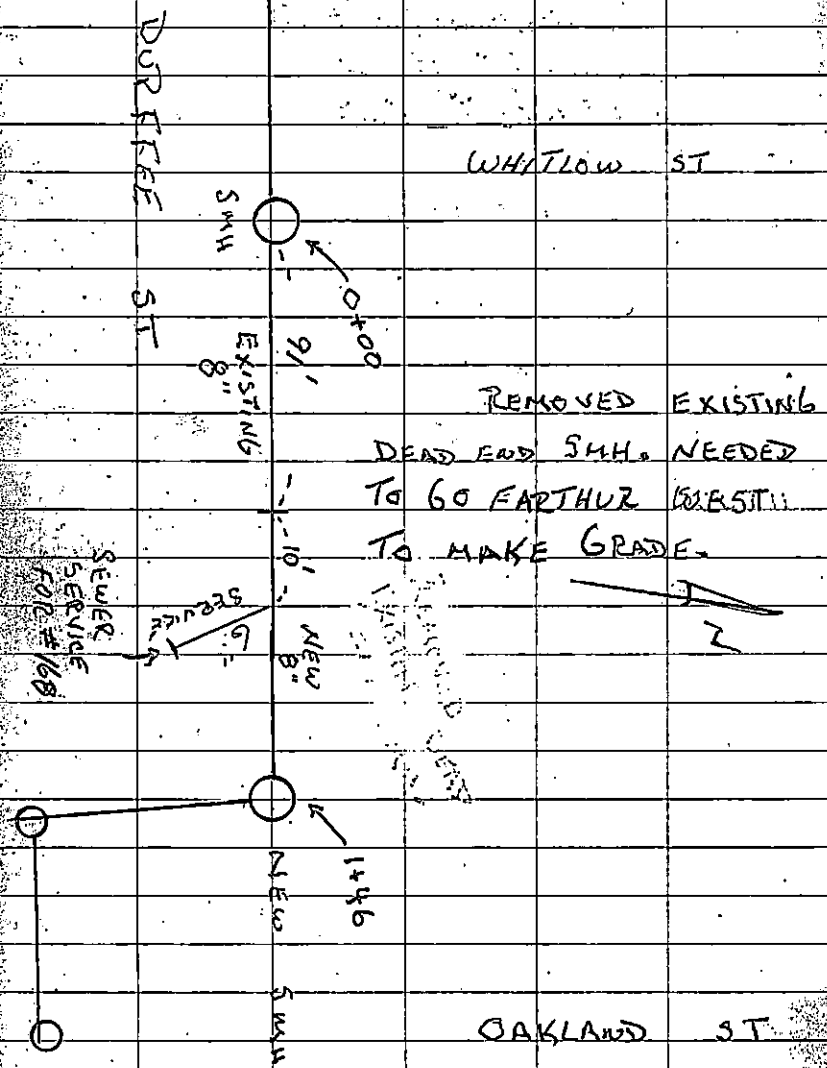 WHITLOW ST
DURFEE ST
SMH
0+00
91'
EXISTING
8"
REMOVED EXISTING
DEAD END SMH. NEEDED
TO GO FARTHUR WEST
TO MAKE GRADE.
10'
SERVICE
6"
NEW
8"
SEWER
SERVICE
FOR #168
1+46
NEW SMH
OAKLAND ST